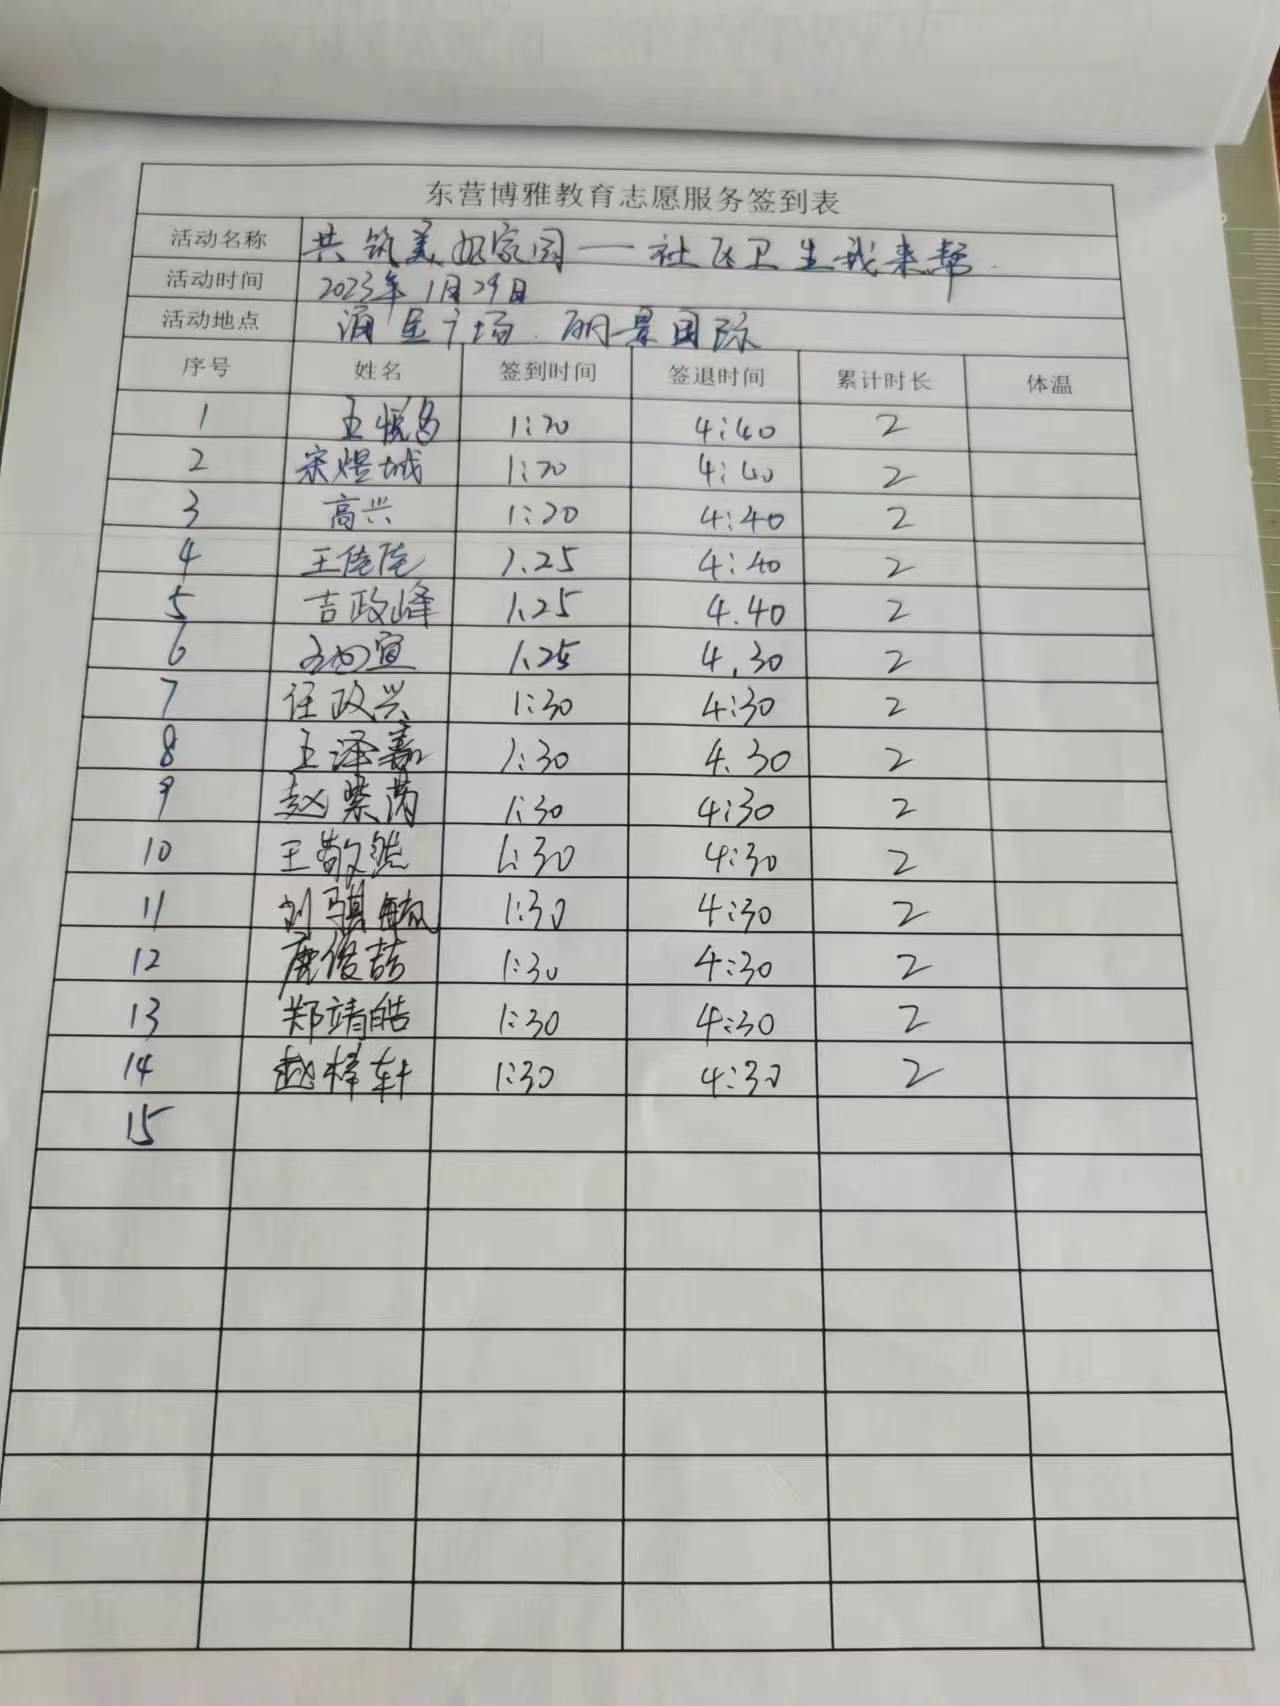 东营博雅教育志愿服务签到表
活动名称 共筑美好家园——社区卫生我来帮
活动时间 2023年1月29日
活动地点 广场、丽景国际
序号 姓名 签到时间 签退时间 累计时长 体温
1 王悦 1:20 4:40 2
2 宋煜城 1:20 4:40 2
3 高兴 1:20 4:40 2
4 王 1.25 4:40 2
5 吉政峰 1.25 4.40 2
6 宣 1.25 4.30 2
7 任政兴 1:30 4:30 2
8 王泽嘉 1:30 4.30 2
9 赵紫 1:30 4:30 2
10 王敬 1:30 4:30 2
11 刘骐毓 1:30 4:30 2
12 俊喆 1:30 4:30 2
13 郑靖皓 1:30 4:30 2
14 赵梓轩 1:30 4:30 2
15